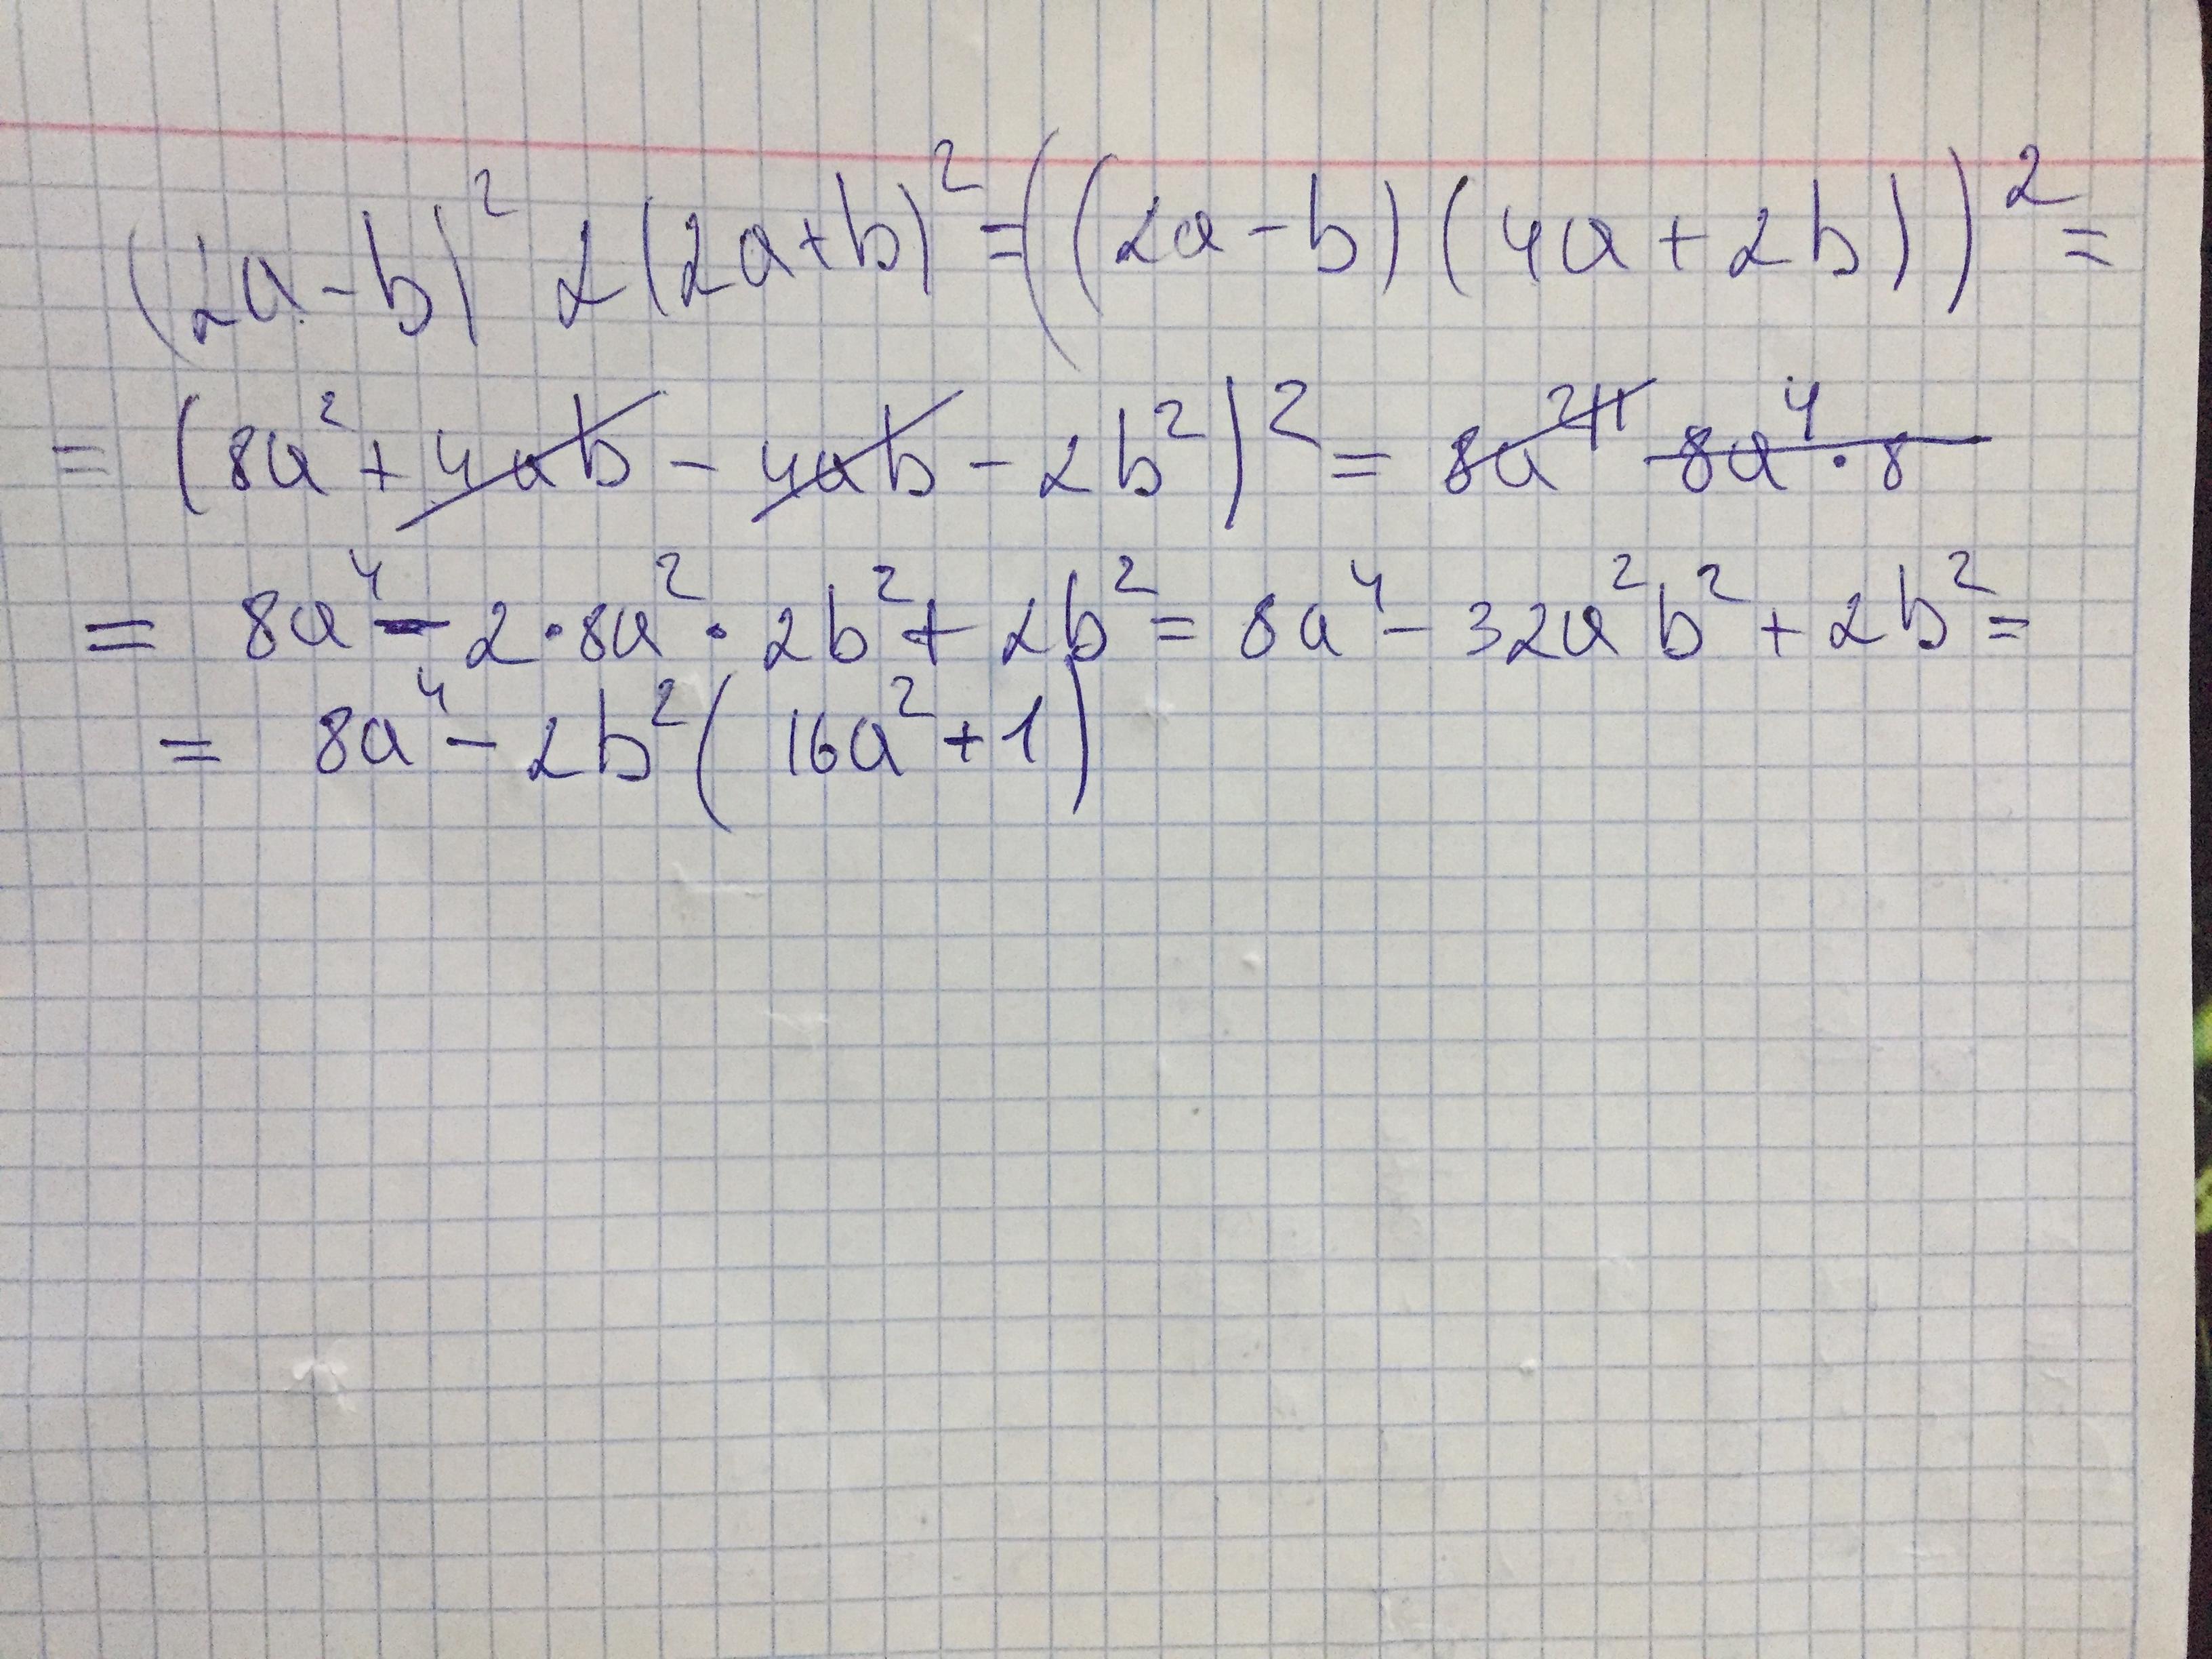 (2a-b)² 2(2a+b)² = ((2a-b)(4a+2b))² =
= (8a² + 4ab - 4ab - 2b²)² = 8a²⁺ 8a⁴·8
= 8a⁴ - 2·8a²·2b² + 2b² = 8a⁴ - 32a²b² + 2b² =
= 8a⁴ - 2b²(16a² + 1)